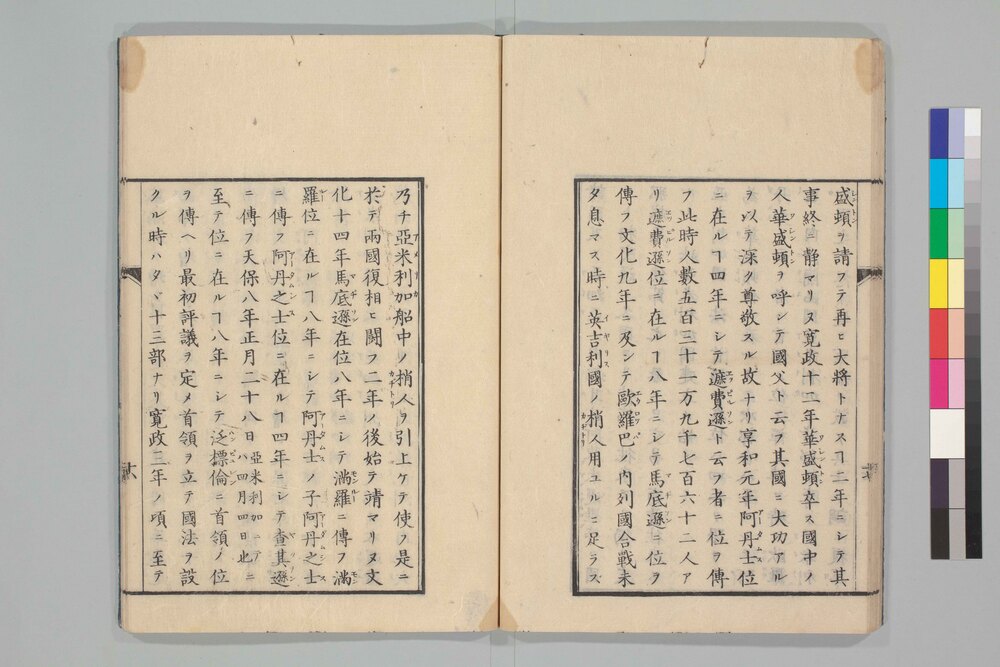 盛頓ヲ請フテ再ヒ大將トナスヿ二年ニシテ其
事終ニ静マリス寛政十二年華盛頓卒ス國中ノ
人華盛頓ヲ呼シテ國父ト云フ其國ニ大功アル
ヲ以テ深ク尊敬スル故ナリ享和元年阿丹士位
ニ在ルヿ四年ニシテ遮費遜ト云フ者ニ位ヲ傳
フ此時人數五百三十一万九千七百六十二人ア
リ遮費遜位ニ在ルヿ八年ニシテ馬底遜ニ位ヲ
傳フ文化九年ニ及シテ歐羅巴ノ内列國合戰未
タ息マス時ニ英吉利國ノ梢人用ユルニ足ラス
乃チ亞米利加船中ノ梢人ヲ引上ケテ使フ是ニ
於テ兩國復相ヒ鬪フ二年ノ後始テ靖マリヌ文
化十四年馬底遜在位八年ニシテ満羅ニ傳フ満
羅位ニ在ルヿ八年ニシテ阿丹士ノ子阿丹之士
ニ傳フ阿丹之士位ニ在ルヿ四年ニシテ查其遜
ニ傳フ天保八年正月二十八日亞米利加ニテハ四月四日也ニ
至テ位ニ在ルヿ八年ニシテ泛標倫ニ首領ノ位
ヲ傳ヘリ最初評議ヲ定メ首領ヲ立テ國法ヲ設
クル時ハタヾ十三部ナリ寛政三年ノ頃ニ至テ